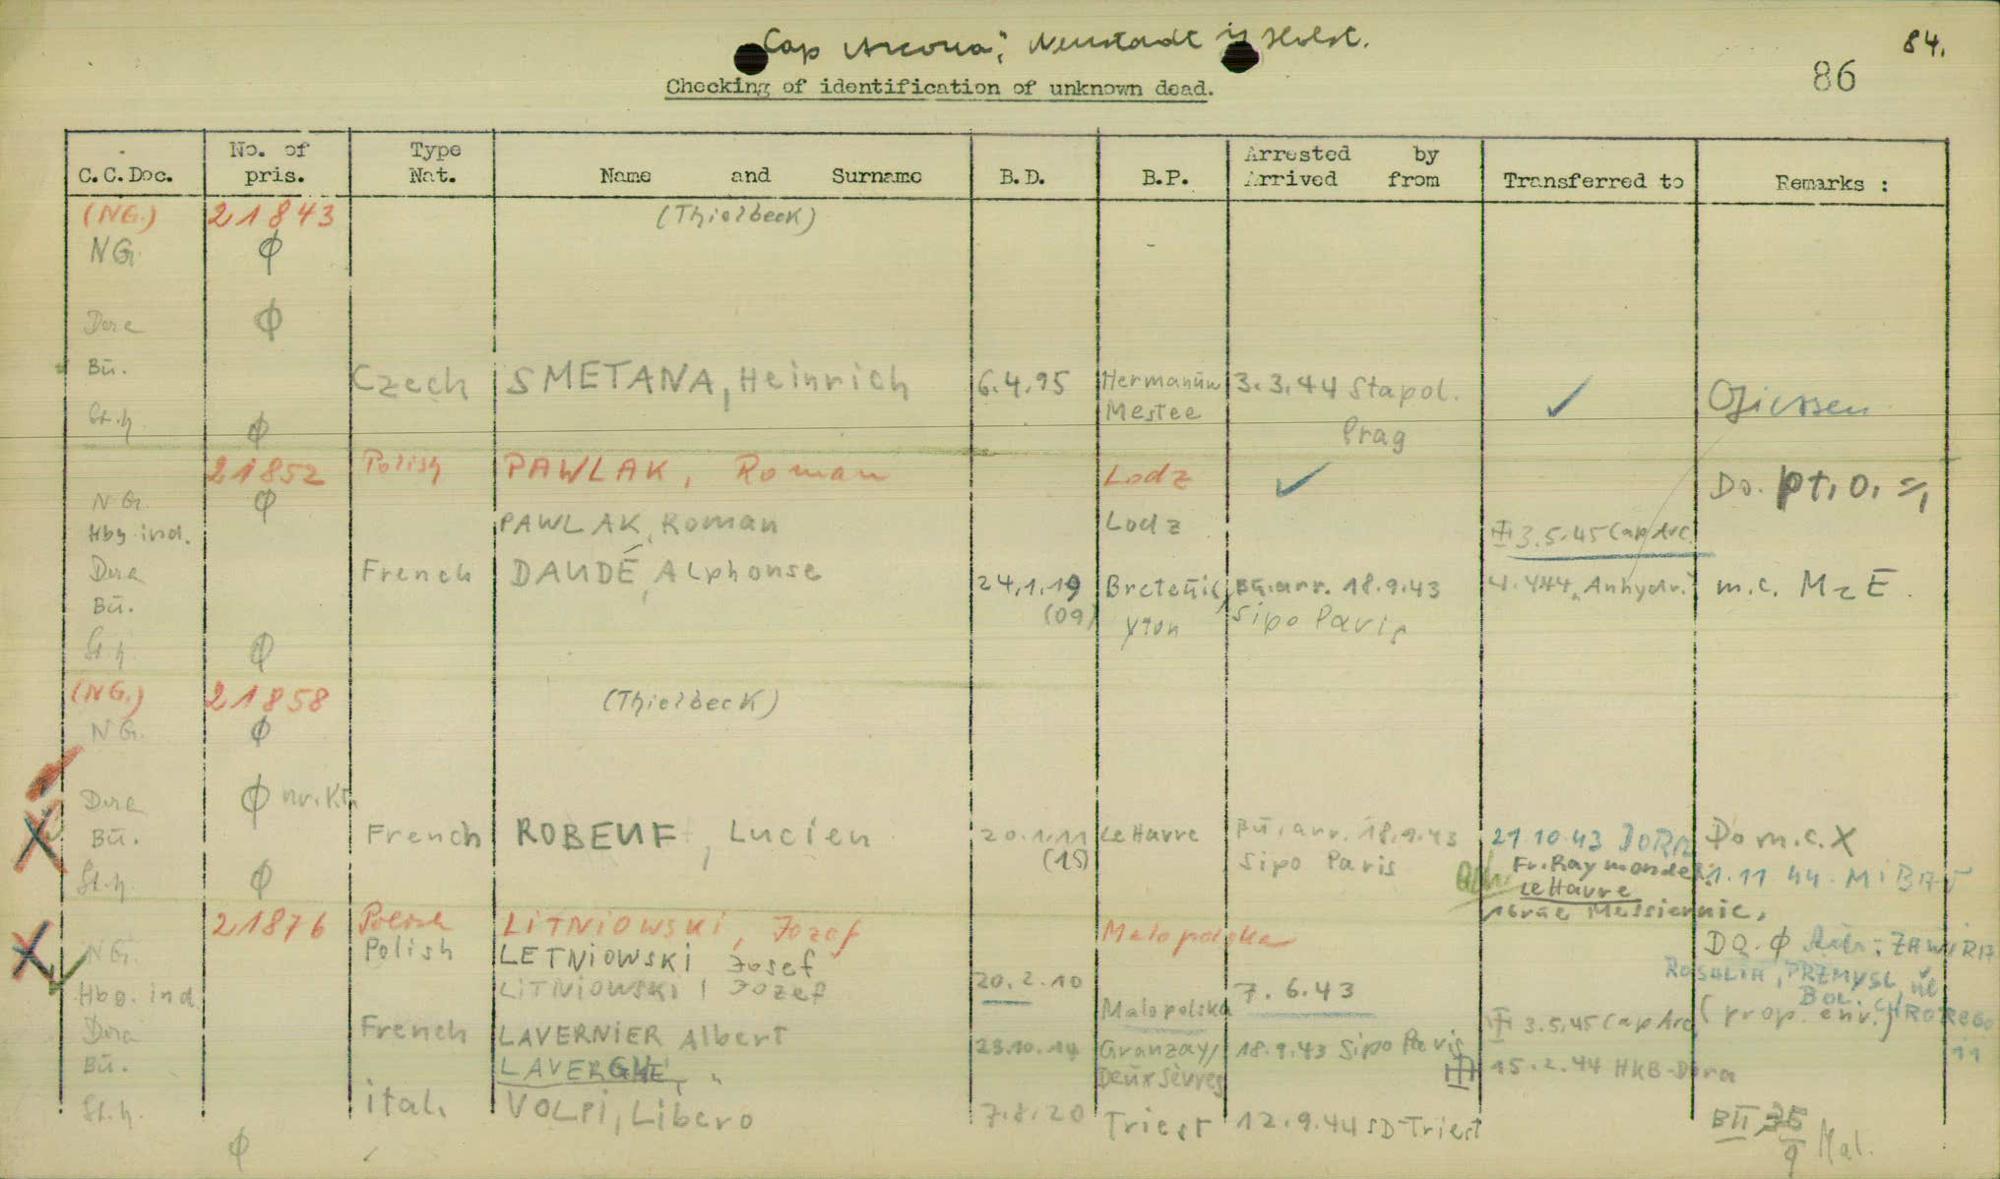 "Cap Arcona", Neustadt i/ Holst.
84.
86
Checking of identification of unknown dead.
C.C.Doc. No. of pris. Type Nat. Name and Surname B.D. B.P. Arrested by Arrived from Transferred to Remarks :
(NG.) 21843 (Thielbeck)
NG. ϕ
Dora ϕ
Bū. Czech SMETANA, Heinrich 6.4.95 Hermanūw Mestec 3.3.44 Stapol. Prag ✓ Giessen
St.h. ϕ
21852 Polish PAWLAK, Roman Lodz ✓ Do. pt. o.
NG. ϕ
Hbg. ind. PAWLAK, Roman Lodz 3.5.45 Cap Arc.
Dora French DAUDÉ, Alphonse 24.1.19 (09) Bū. arr. 18.9.43 Sipo Paris 4.444 "Anhydr." m.c. M
Bū.
St.h. ϕ
(NG.) 21858 (Thielbeck)
NG. ϕ
Dora ϕ nr. Kt.
Bū. French ROBEUF, Lucien 20.1.11 (15) Le Havre Bū. arr. 18.9.43 Sipo Paris 27.10.43 DORA Do m.c. X
Fr. Raymonde R. 1.11 44
Le Havre
St.h. ϕ
16 rue
21876 LITNIOWSKI, Jozef Malopolska
NG. Polish LETNIOWSKI Josef Do. ϕ ZAWIRA
ROSALIA, PRZMYSL
Hbg. ind. LITNIOWSKI, Jozef 20.2.10 Malopolska 7.6.43 3.5.45 Cap Arc. (prop. env.)
Dora French LAVERNIER Albert 23.10.14 Granzay/ Deūx Sèvres 18.9.43 Sipo Paris 15.2.44 HKB-Dora
Bū. LAVERGNE, "
St.h. ital. VOLPI, Libero 7.8.20 Triest 12.9.44 SD-Triest BU
ϕ